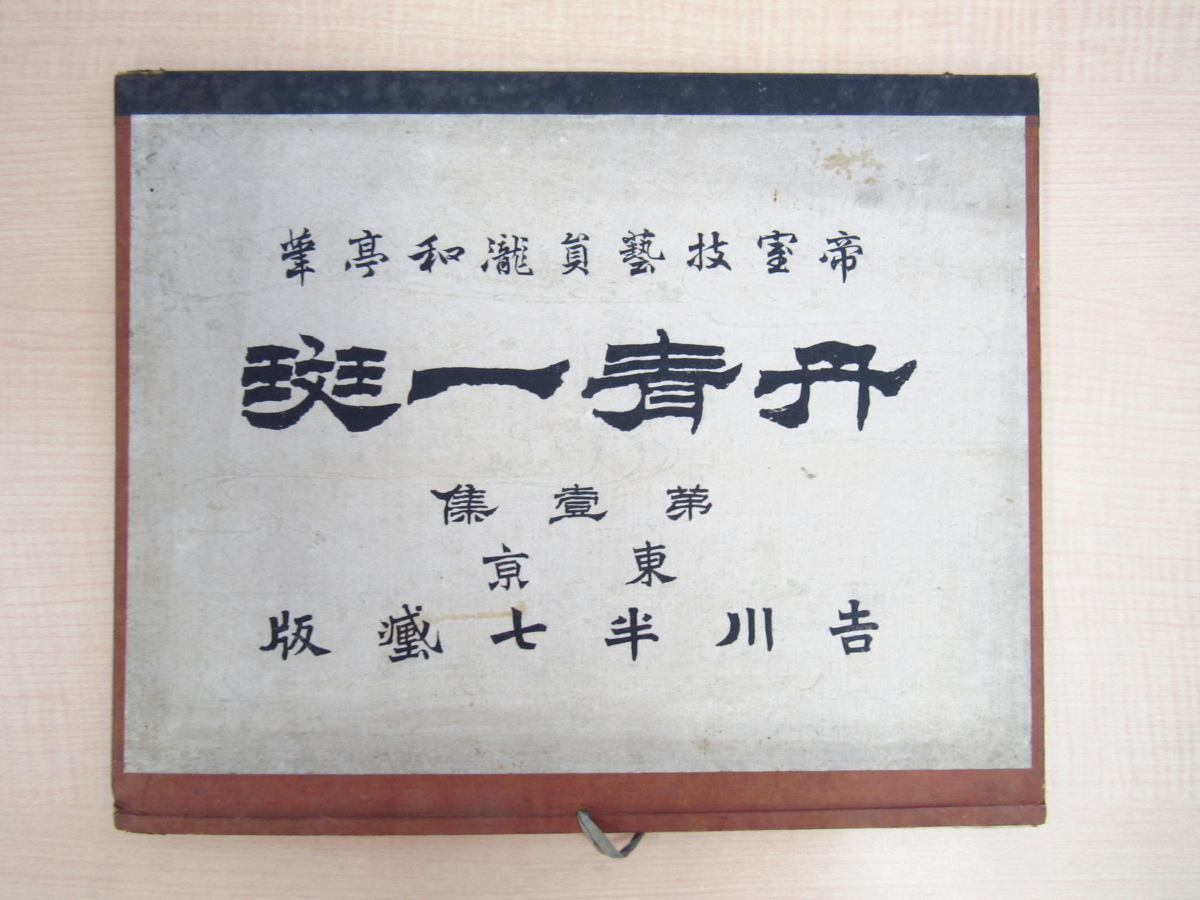 帝室技藝員瀧和亭筆
丹青一斑
第壹集
東京
吉川半七藏版